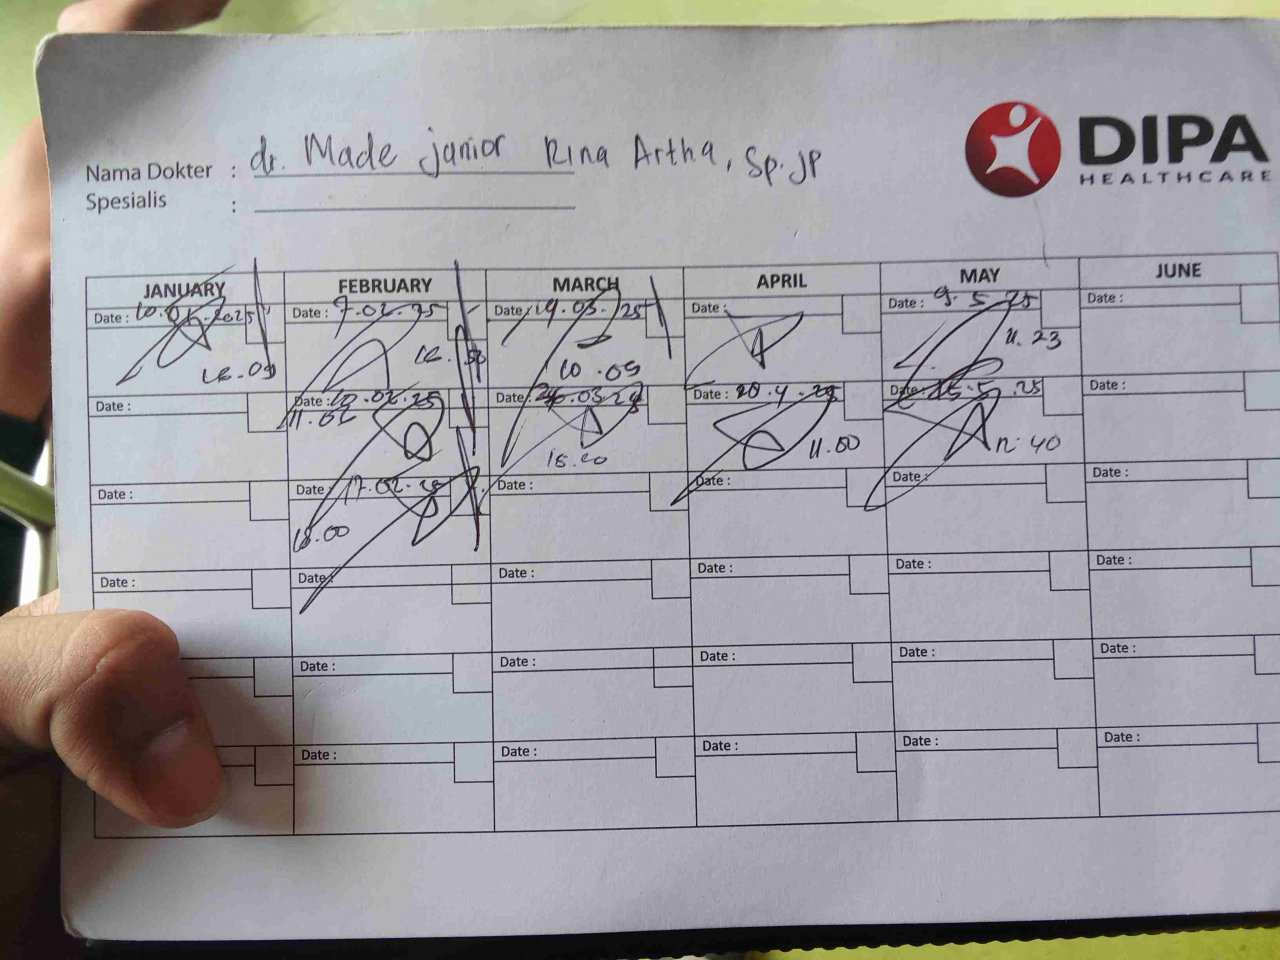 DIPA
HEALTHCARE
Nama Dokter : dr. Made junior Rina Artha, Sp.JP
Spesialis :
JANUARY FEBRUARY MARCH APRIL MAY JUNE
Date : Date : 7.02.25 Date : 19.03.25 Date : Date : 9.5.25 Date :
10.09 11.23
Date : Date : 10.02.25 Date : Date : 20.4.25 Date : 15.5.25 Date :
11.02
11.00 12.40
Date : Date : 17.02.25 Date : Date : Date : Date :
Date : Date : Date : Date : Date : Date :
Date : Date : Date : Date : Date :
Date : Date : Date : Date : Date :